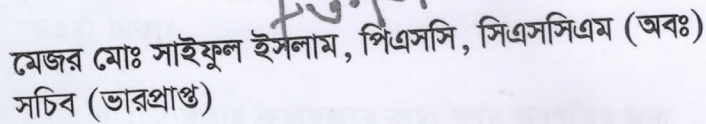 মেজর মোঃ সাইফুল ইসলাম, পিএসসি, সিএসসিএম (অবঃ)
সচিব (ভারপ্রাপ্ত)